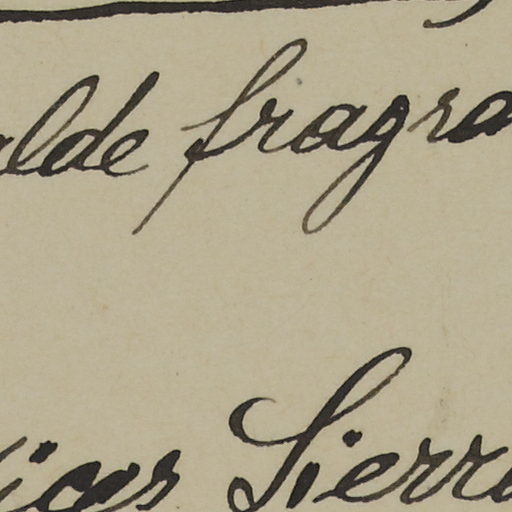 alde fragra
icas Sierra